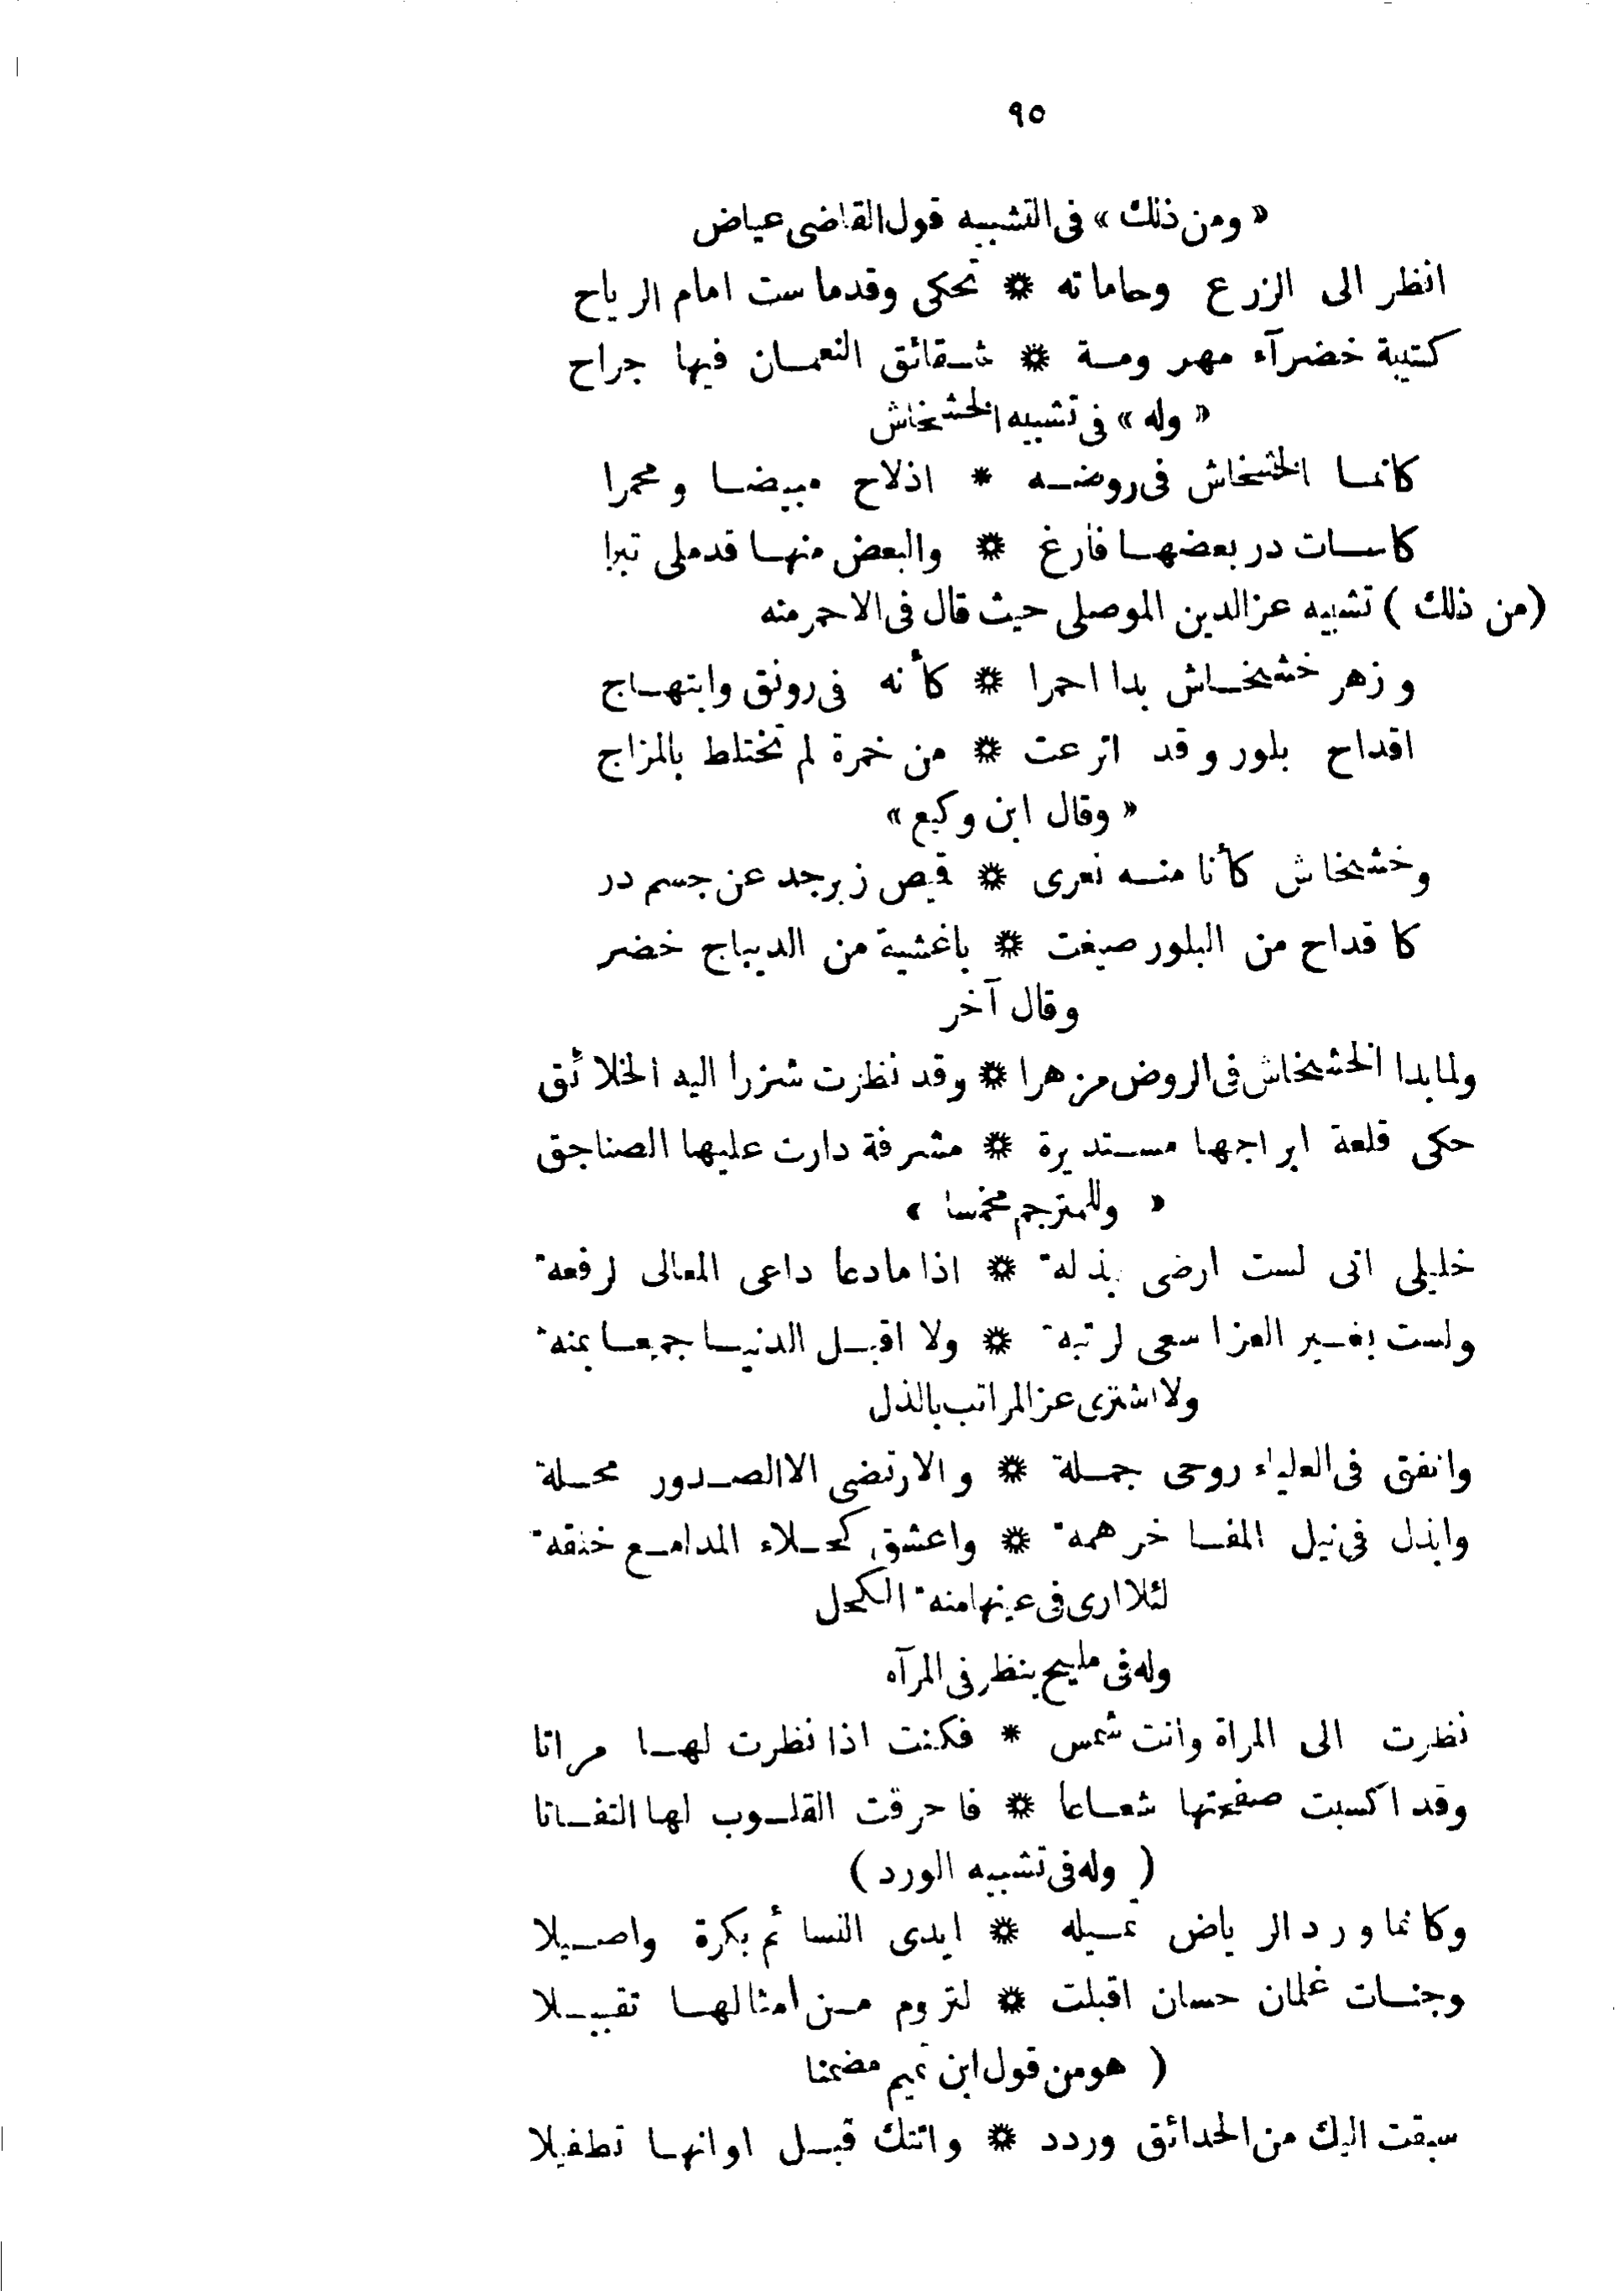 ٩٥
« ومن ذلك » فى التشبيه قول القاضى عياض
انظر الى الزرع وحاماته * تحكى وقدماست امام الرياح
كتيبة خضرآء مهرومة * شقائق النعمان فيها جراح
« وله » فى تشبيه الخشخاش
كانما الخشخاش فى روضه * اذلاح مبيضا ومحمرا
كاسات در بعضها فارغ * والبعض منها قدملى تبرا
(من ذلك ) تشبيه عزالدين الموصلى حيث قال فى الاحمر منه
وزهر خشخاش بدا احمرا * كأنه فى رونق وابتهاج
اقداح بلور وقد اترعت * من خمرة لم تختلط بالمزاج
« وقال ابن وكيع »
وخشخاش كأنا منه نعرى * قيص زبرجد عن جسم در
كاقداح من البلور صيغت * باغشية من الديباج خضر
وقال آخر
ولما بدا الخشخاش فى الروض مزهرا * وقد نظرت شزرا اليه الخلائق
حكى قلعة ابراجها مستديرة * مشرفة دارت عليها الصناجق
« وللمترجم مخمسا »
خليلى انى لست ارضى بذله * اذا مادعا داعى المعالى لرفعه
ولست بغير العز اسعى لرتبه * ولا اقبل الدنيا جميعا بمنه
ولا اشترى عز المراتب بالذل
وانفق فى العلياء روحى جملة * والارتضى الا الصدور محلة
وابذل فى نيل المفاخر همه * واعشق كحلاء المدامع خنقه
لئلا ارى فى عينها منه الكحل
وله فى مليح ينظر فى المرآه
نظرت الى المراة وانت شمس * فكنت اذا نظرت لها مراتا
وقد اكسبت صفحتها شعاعا * فاحرقت القلوب لها التفاتا
( وله فى تشبيه الورد )
وكانما ورد الرياض تميله * ايدى النسائم بكرة واصيلا
وجنات غلمان حسان اقبلت * لتروم من امثالها تقبيلا
( هو من قول ابن تميم مضمنا
سبقت اليك من الحدائق وردد * واتتك قبل اوانها تطفيلا